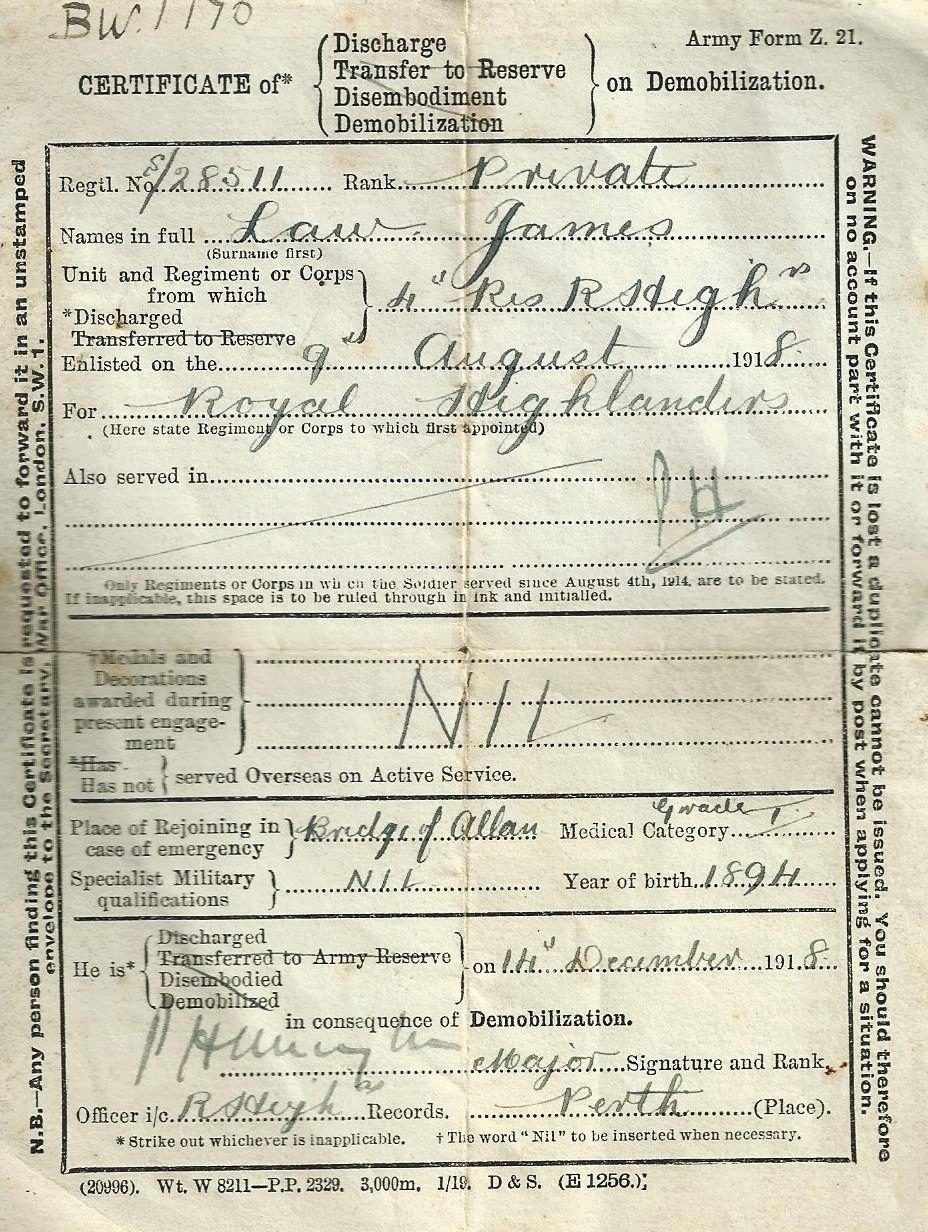 BW. 1170
Army Form Z. 21.
CERTIFICATE of* { Discharge
Transfer to Reserve
Disembodiment
Demobilization } on Demobilization.
Regtl. No. S/28511 Rank Private
Names in full Law James
(Surname first)
Unit and Regiment or Corps
from which
*Discharged
Transferred to Reserve } 4" Res R High rs
Enlisted on the 9th August 1918.
For Royal Highlanders
(Here state Regiment or Corps to which first appointed)
Also served in
PH
Only Regiments or Corps in which the Soldier served since August 4th, 1914, are to be stated.
If inapplicable, this space is to be ruled through in ink and initialled.
†Medals and
Decorations
awarded during
present engage-
ment } Nil
*Has
Has not } served Overseas on Active Service.
Place of Rejoining in
case of emergency } Bridge of Allan Medical Category Grade I
Specialist Military
qualifications } NIL Year of birth 1894
He is* { Discharged
Transferred to Army Reserve
Disembodied
Demobilized } on 14" December 1918.
in consequence of Demobilization.
Major Signature and Rank.
Officer i/c. R High rs Records. Perth (Place).
* Strike out whichever is inapplicable. † The word "Nil" to be inserted when necessary.
(20996). Wt. W 8211—P.P. 2329. 3,000m. 1/19. D & S. (E 1256.)
N.B.—Any person finding this Certificate is requested to forward it in an unstamped
envelope to the Secretary, War Office, London, S.W. 1.
WARNING.—If this Certificate is lost a duplicate cannot be issued. You should therefore
on no account part with it or forward it by post when applying for a situation.